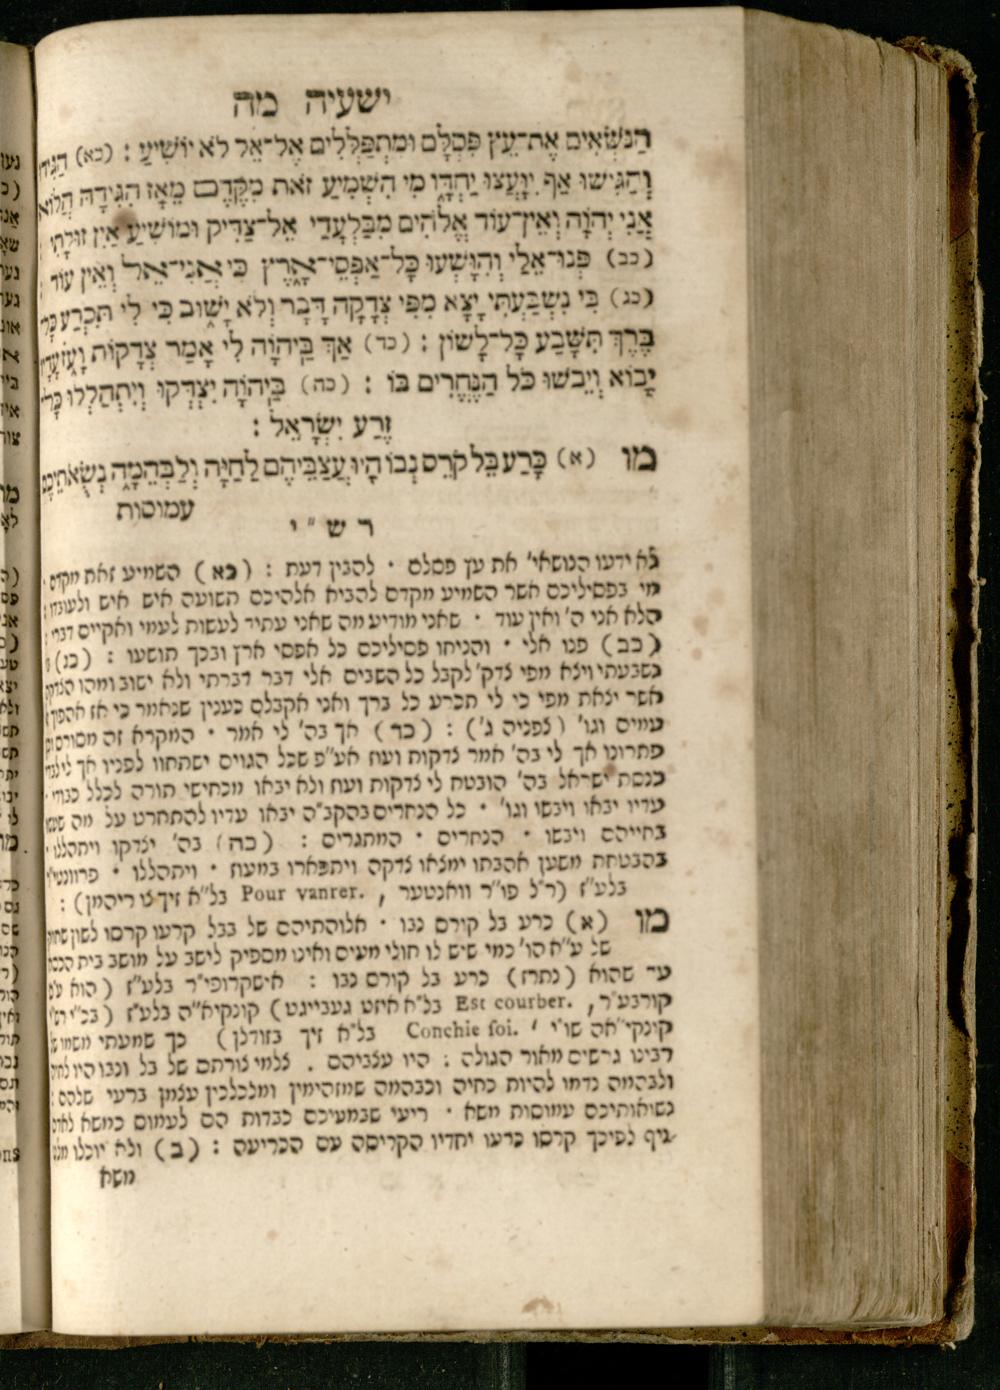 ישעיה מה
הַנֹּשְׂאִים אֶת־עֵץ פִּסְלָם וּמִתְפַּלְלִים אֶל־אֵל לֹא יוֹשִׁיעַ : (כא) הַגִּידוּ
וְהַגִּישׁוּ אַף יִוָּעֲצוּ יַחְדָּו מִי הִשְׁמִיעַ זֹאת מִקֶּדֶם מֵאָז הִגִּידָהּ הֲלוֹא
אֲנִי יְהוָֹה וְאֵין־עוֹד אֱלֹהִים מִבַּלְעָדַי אֵל־צַדִּיק וּמוֹשִׁיעַ אַיִן זוּלָתִי :
(כב) פְּנוּ־אֵלַי וְהִוָּשְׁעוּ כָּל־אַפְסֵי־אָרֶץ כִּי אֲנִי־אֵל וְאֵין עוֹד :
(כג) בִּי נִשְׁבַּעְתִּי יָצָא מִפִּי צְדָקָה דָּבָר וְלֹא יָשׁוּב כִּי לִי תִּכְרַע כָּל־
בֶּרֶךְ תִּשָּׁבַע כָּל־לָשׁוֹן : (כד) אַךְ בַּיהוָֹה לִי אָמַר צְדָקוֹת וָעֹז עָדָיו
יָבוֹא וְיֵבֹשׁוּ כֹּל הַנֶּחֱרִים בּוֹ : (כה) בַּיהוָֹה יִצְדְּקוּ וְיִתְהַלְלוּ כָּל־
זֶרַע יִשְׂרָאֵל :
מו (א) כָּרַע בֵּל קֹרֵס נְבוֹ הָיוּ עֲצַבֵּיהֶם לַחַיָּה וְלַבְּהֵמָה נְשֻׂאֹתֵיכֶם
עמוסות
רש"י
לא ידעו הנושאי' את עץ פסלם · להבין דעת : (כא) השמיע זאת מקדם ·
מי בפסיליכם אשר השמיע מקדם להביא אלהיכם תשועה איש איש ולעובדו :
הלא אני ה' ואין עוד · שאני מודיע מה שאני עתיד לעשות לעמי ואקיים דברי :
(כב) פנו אלי · והניחו פסיליכם כל אפסי ארץ ובכך תושעו : (כג)
נשבעתי ויצא מפי צדק' לקבל כל השבים אלי דבר דברתי ולא ישוב ומהו הצדקה
אשר יצאת מפי כי לי תכרע כל ברך ואני אקבלם כענין שנאמר כי אז אהפוך
עמים וגו' (צפניה ג') : (כד) אך בה' לי אמר · המקרא זה מסורס
פתרונו אך לי בה' אמר צדקות ועוז אע"פ שכל הגוים ישתחוו לפניו אך
כנסת ישראל בה' הובטח לי צדקות ועוז ולא יבאו מכחישי תורה לכלל כבודי ·
עדיו יבאו ויבשו וגו' · כל הנחרים בהקב"ה יבאו עדיו להתחרט על מה שעשו
בחייהם ויבשו · הנחרים · המתגרים : (כה) בה' יצדקו ויתהללו ·
בהבטחת משען אהבתו ימצאו צדקה ויתפארו במעוז · ויתהללו · פרוונטי"ר
בלע"ז (ר"ל פו"ר וואנטער , Pour vanrer. בל"א זיך צו ריהמן) :
מו (א) כרע בל קורס נבו · אלוהתיהם של בבל קרעו קרסו לשון שחוק
של ע"א הו' כמי שיש לו חולי מעים ואינו מספיק לישב על מושב בית הכסא
עד שהוא (נתרז) כרע בל קורס נבו : אישקרופי"ר בלע"ז (הוא
קורבע"ר, Est courber. בל"א איזט געבייגט) קונקיא"ה בלע"ז (בכ"י רש"י
קונקי"אה שו"י ' Conchie soi. בל"א זיך בזודלן) כך שמעתי משמו של
רבינו גרשום מאור הגולה : היו עצביהם . צלמי צורתם של בל ונבו היו לחיה
ולבהמה נדמו להיות כחיה וכבהמה שמזהימין ומלכלכין עצמן ברעי שלהם :
נשואותיכם עמוסות משא · ריעי שבמעיכם כבדות הם לעמום כמשא לאדם
עיף לפיכך קרסו כרעו יחדיו הקריסה עם הכריעה : (ב) ולא יוכלו מלט
משא